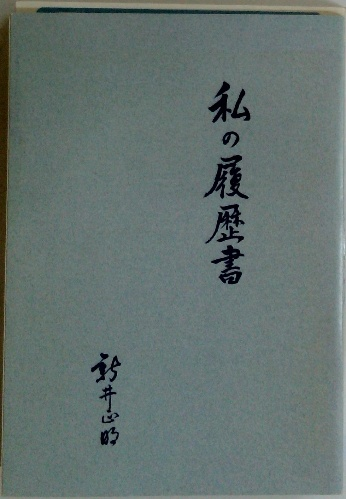 私の履歴書
新井正明